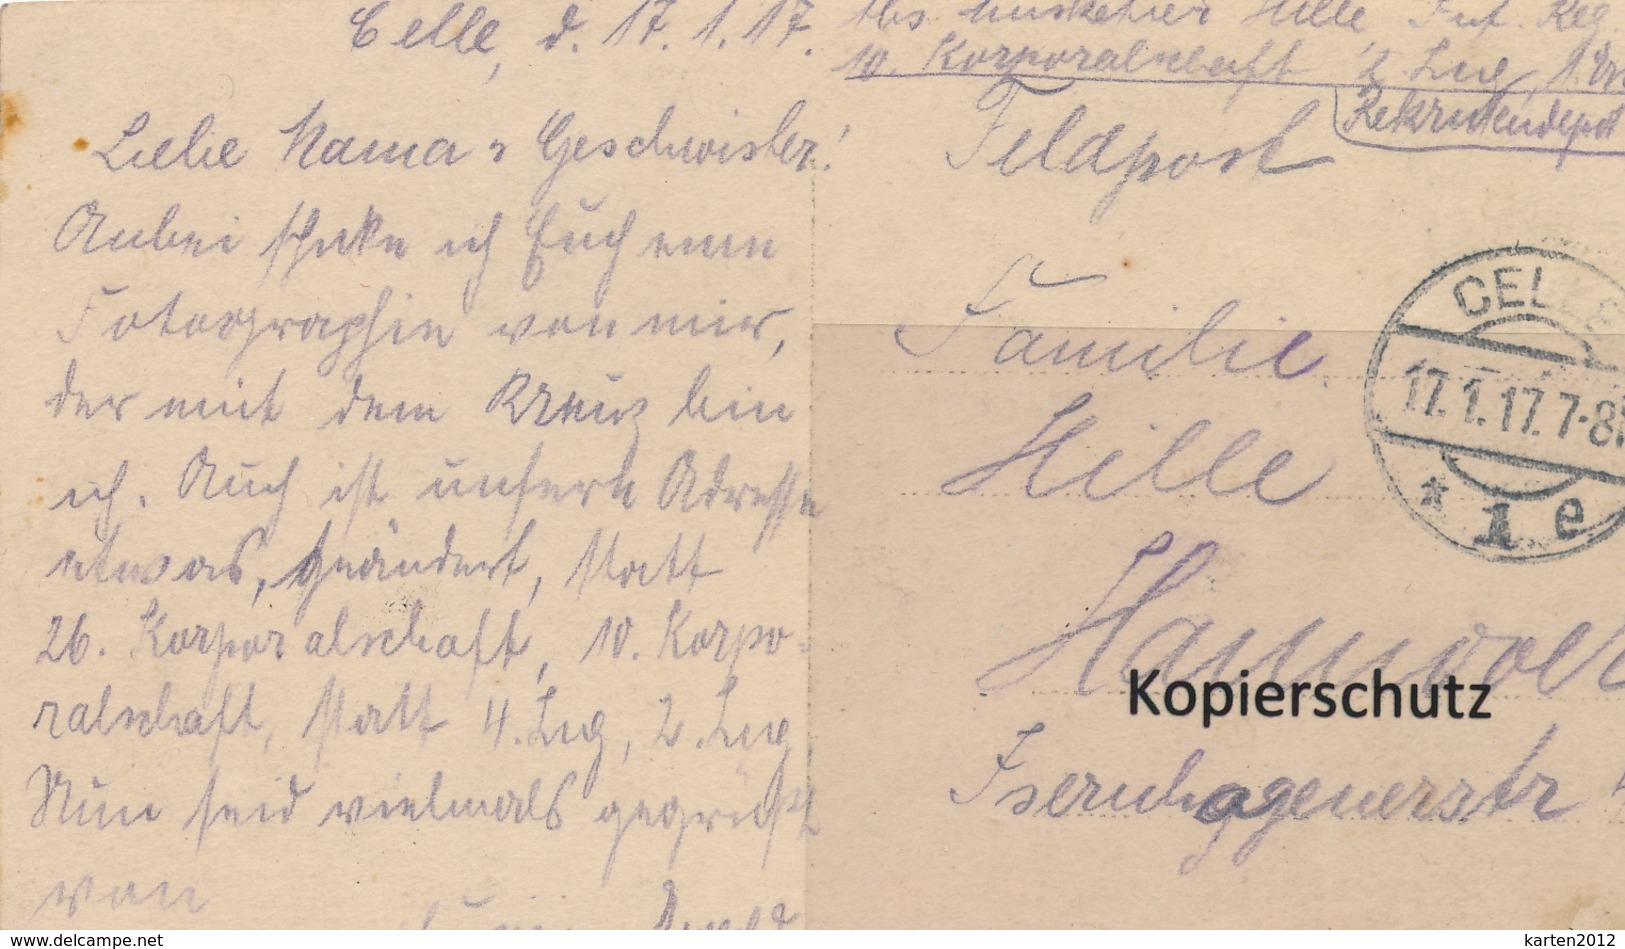 Celle, d. 17. 1. 17.
Liebe Mama u Geschwister!
Anbei schicke ich Euch eine
Fotographie von mir,
der mit dem Kreuz bin
ich. Auch ist unsere Adresse
etwas geändert, statt
26. Korporalschaft, 10. Korpo-
ralschaft, statt 4. Zug, 2. Zug
Nun seid vielmals gegrüßt
von
Abs. Musketier Hille, Inf. Reg
10. Korporalschaft 2. Zug, 1.
Rekrutendepot
Feldpost
Familie
Hille
Hannover
Isernhagenerstr
CELLE
17.1.17.7-8
* 1 e
Kopierschutz
www.delcampe.net
karten2012